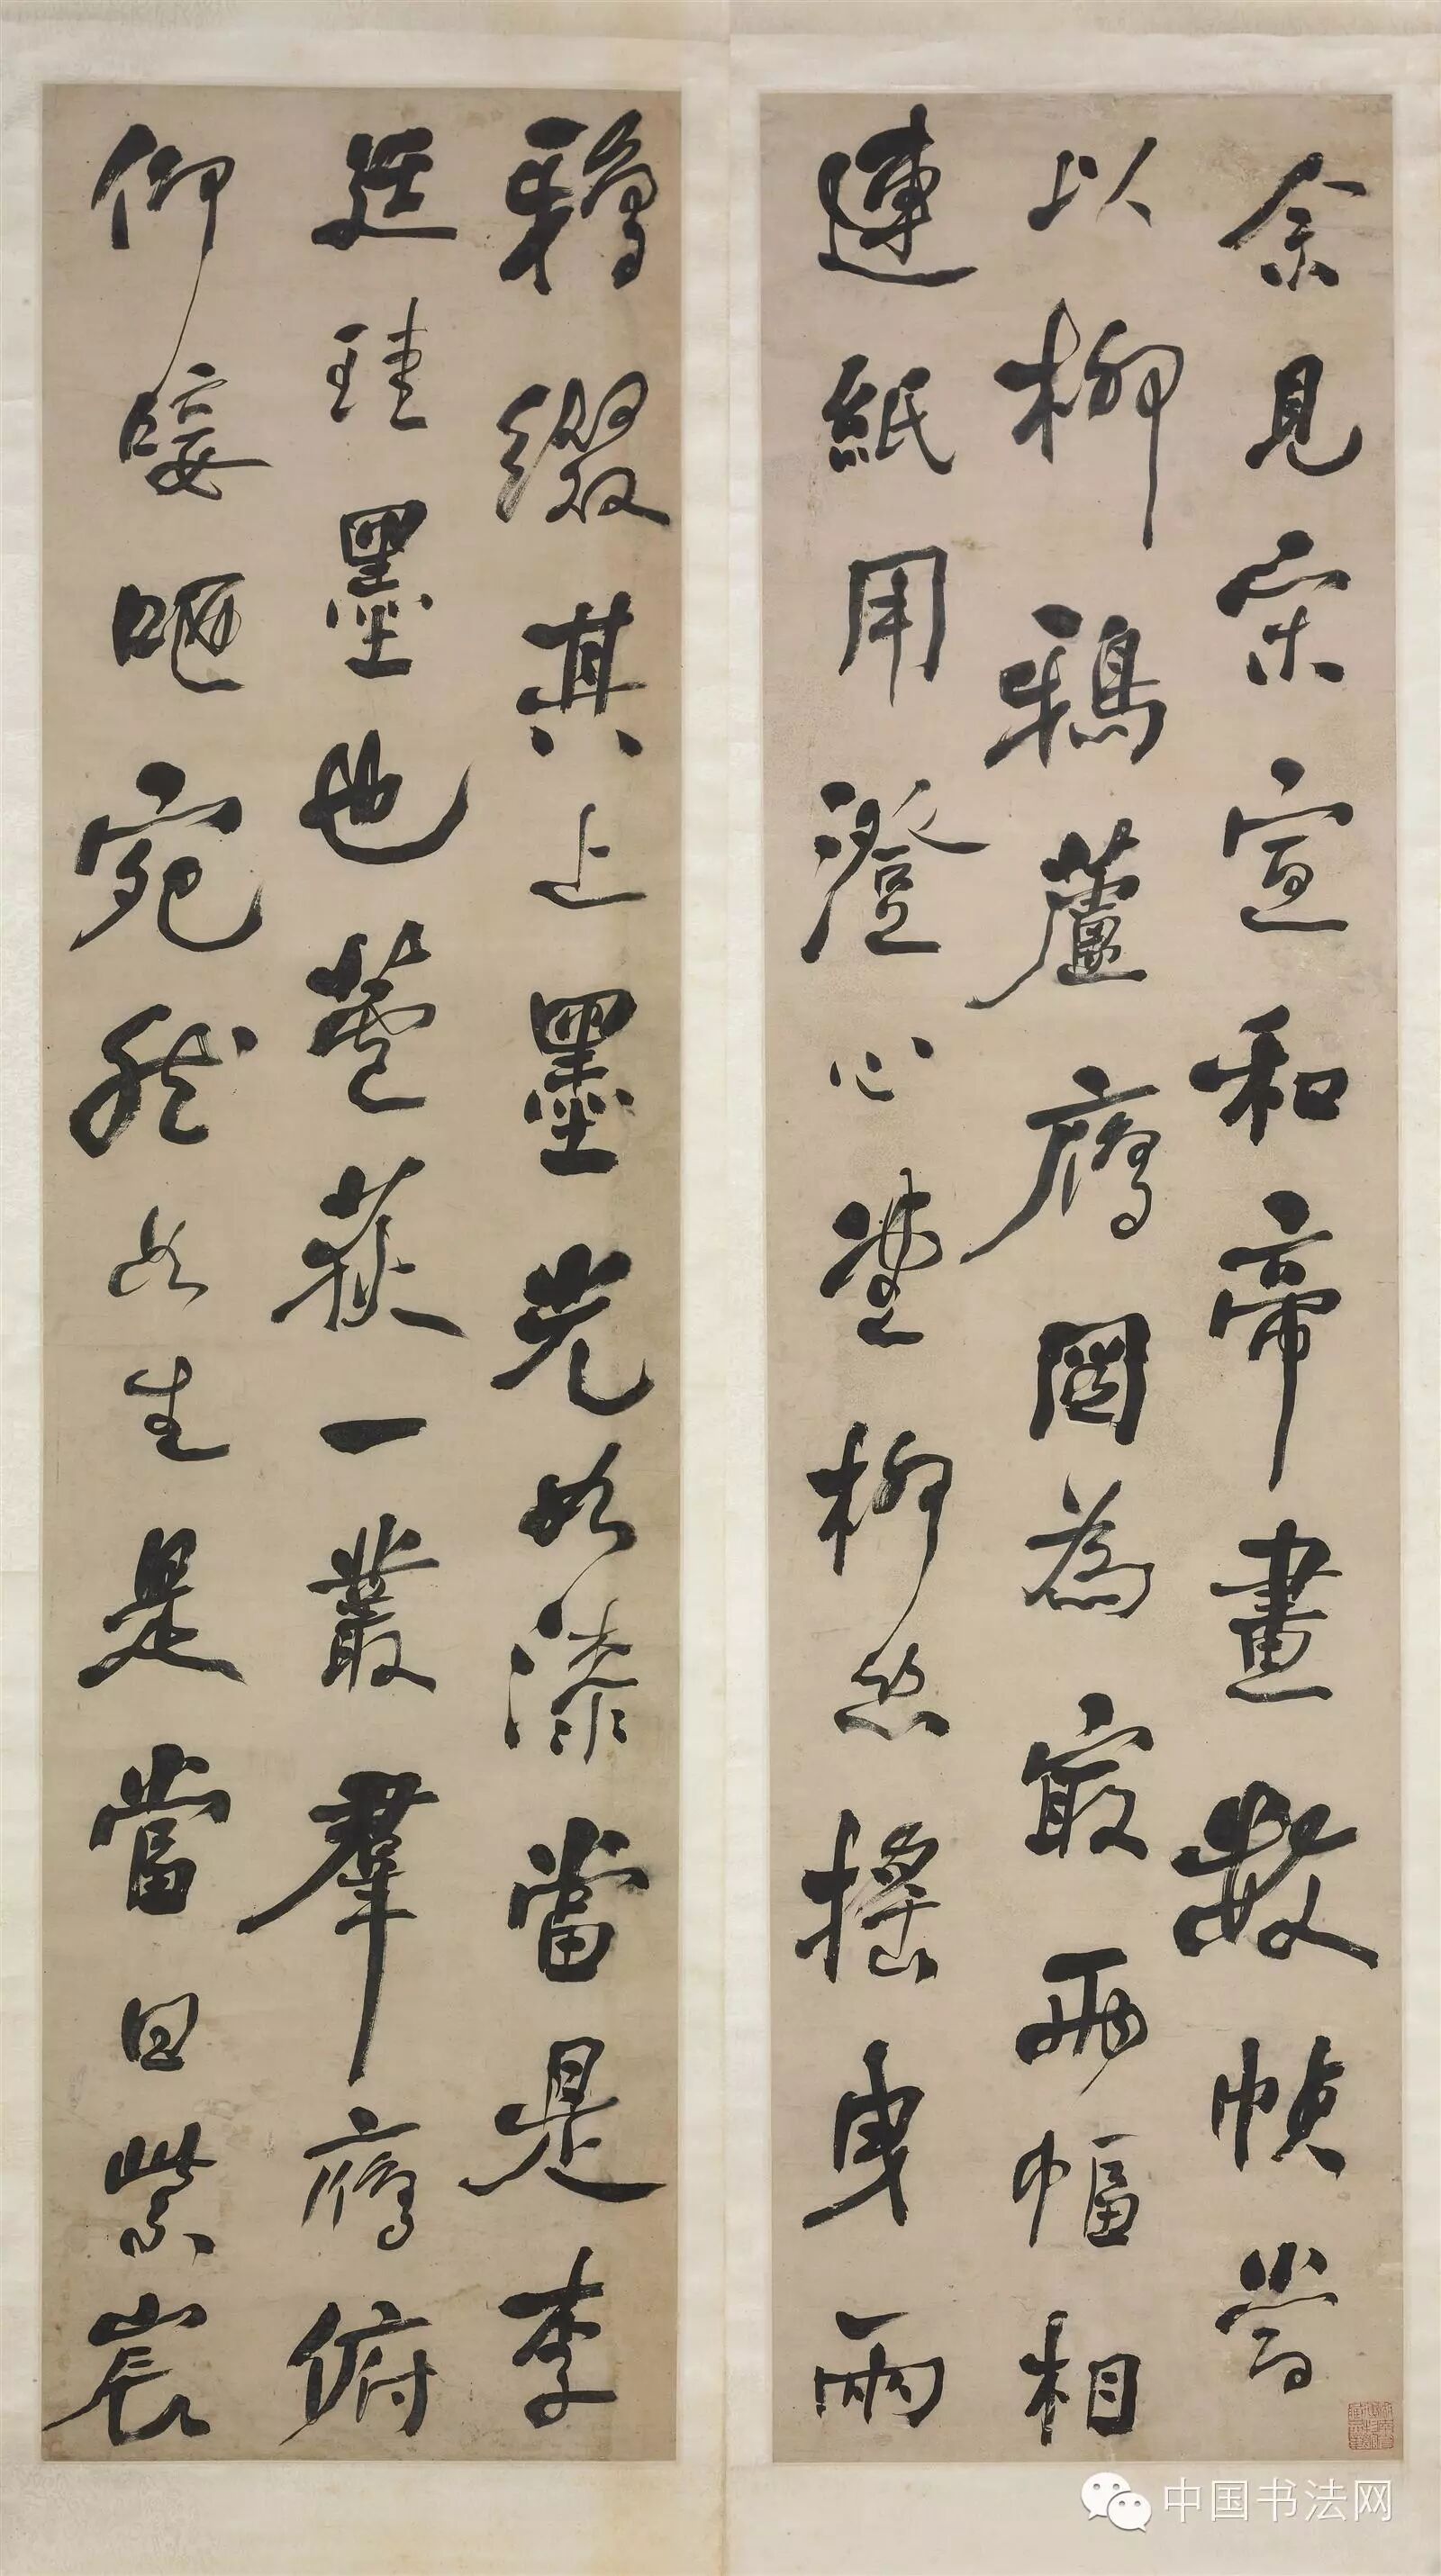 余見宋宣和帝畫數幀嘗
以柳鴉蘆鴈圖為最兩幅相
連紙用澄心堂柳絲搖曳兩
鴉綴其上墨光如漆當是李
廷珪墨也蘆荻一叢羣鴈俯
仰唼咂宛然如生是當日紫宸
中国书法网